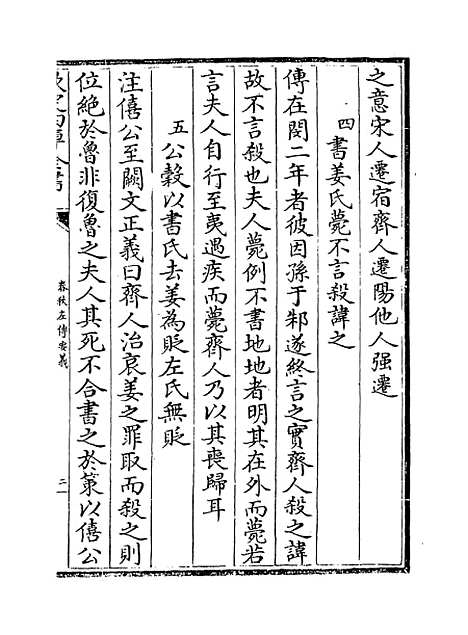 之意宋人遷宿齊人遷陽他人强遷
四書姜氏薨不言殺諱之
傳在閔二年者彼因孫于邾遂終言之實齊人殺之諱
故不言殺也夫人薨例不書地地者明其在外而薨若
言夫人自行至夷遇疾而薨齊人乃以其喪歸耳
五公穀以書氏去姜為貶左氏無貶
注僖公至闕文正義曰齊人治哀姜之罪取而殺之則
位絶於魯非復魯之夫人其死不合書之於䇿以僖公
春秋左傳要義